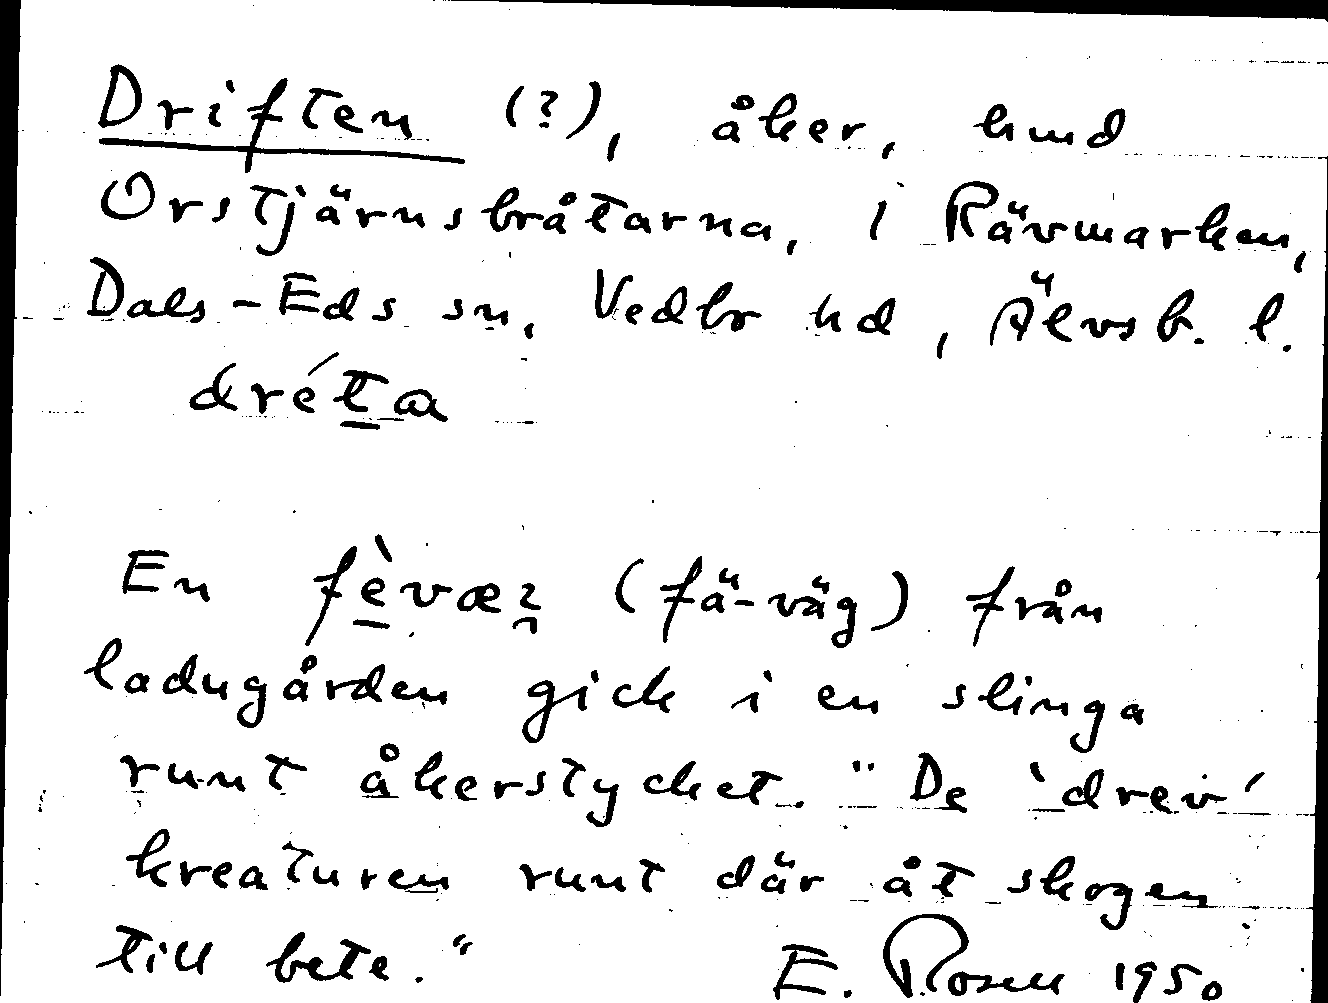 Driften (?), åker, hmd
Orstjärnsbråtarna, i Rävmarken,
Dals-Eds sn, Vedbo hd, Älvsb. l.
dréta
En (fä-väg) från
ladugården gick i en slinga
runt åkerstycket. "De 'drev'
kreaturen runt där åt skogen
till bete." E. Rosen 1950